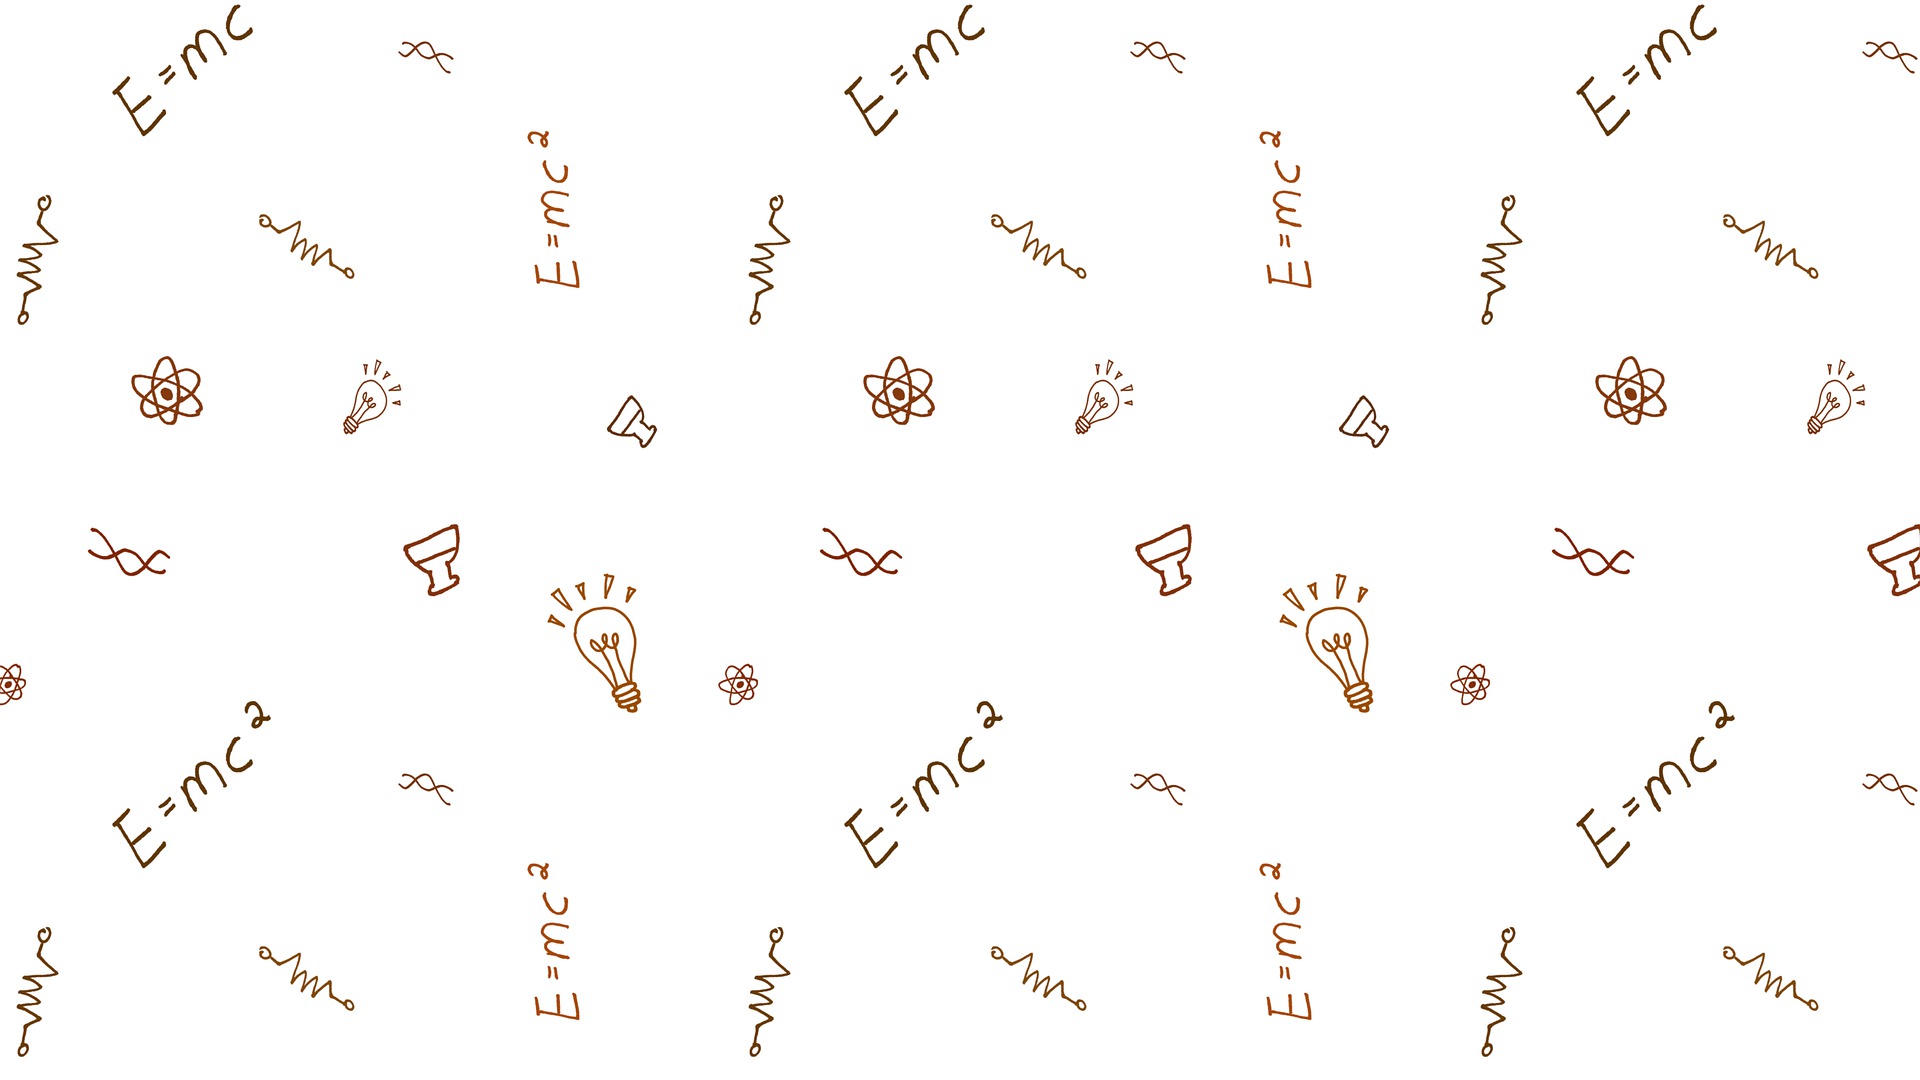 E=mc
E=mc
E=mc
E=mc²
E=mc²
E=mc²
E=mc²
E=mc²
E=mc²
E=mc²